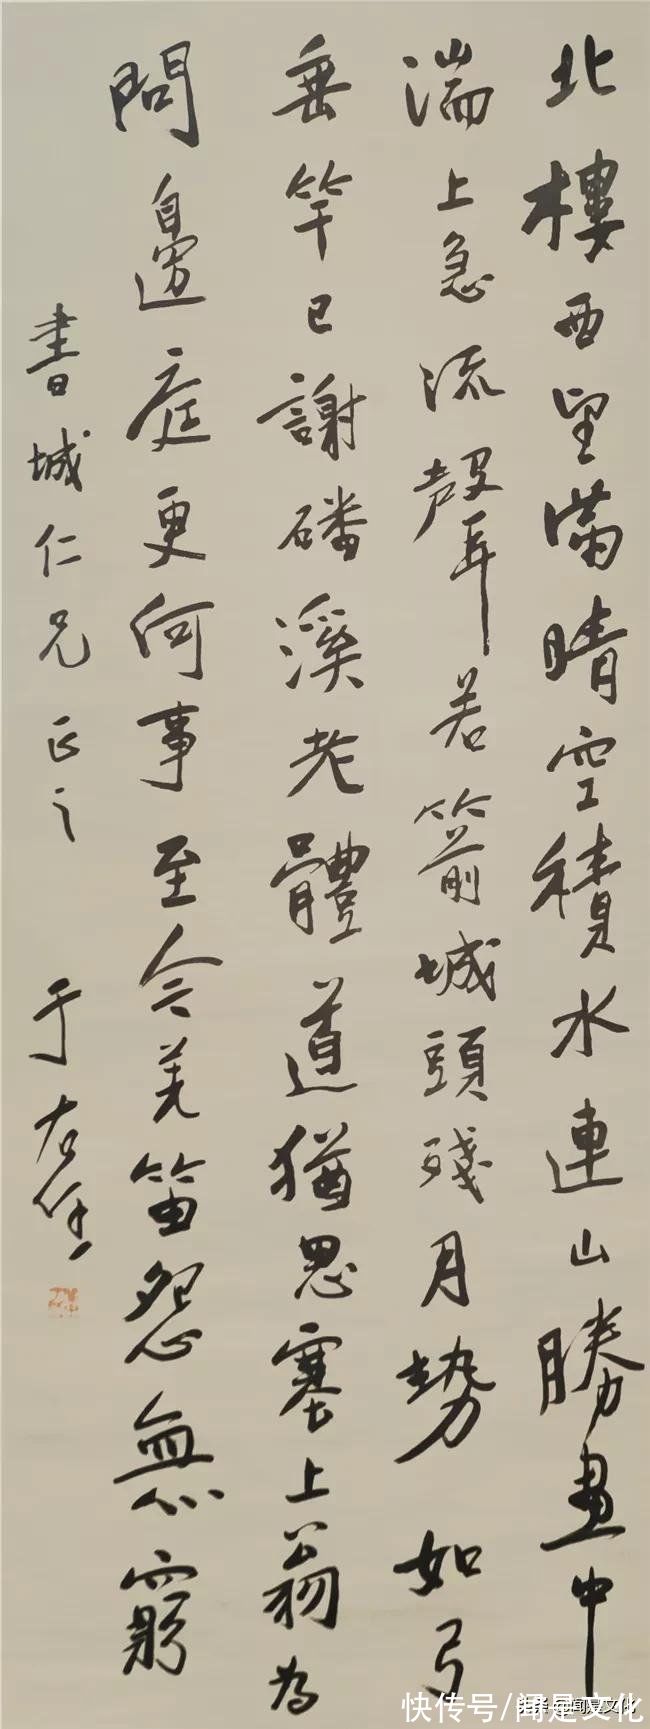 北樓西望滿晴空積水連山勝畫中
湍上急流聲若箭城頭殘月勢如弓
垂竿已謝磻溪老體道猶思塞上翁為
問邊庭更何事至今羌笛怨無窮
書城仁兄正之 于右任
快传号/闻是文化